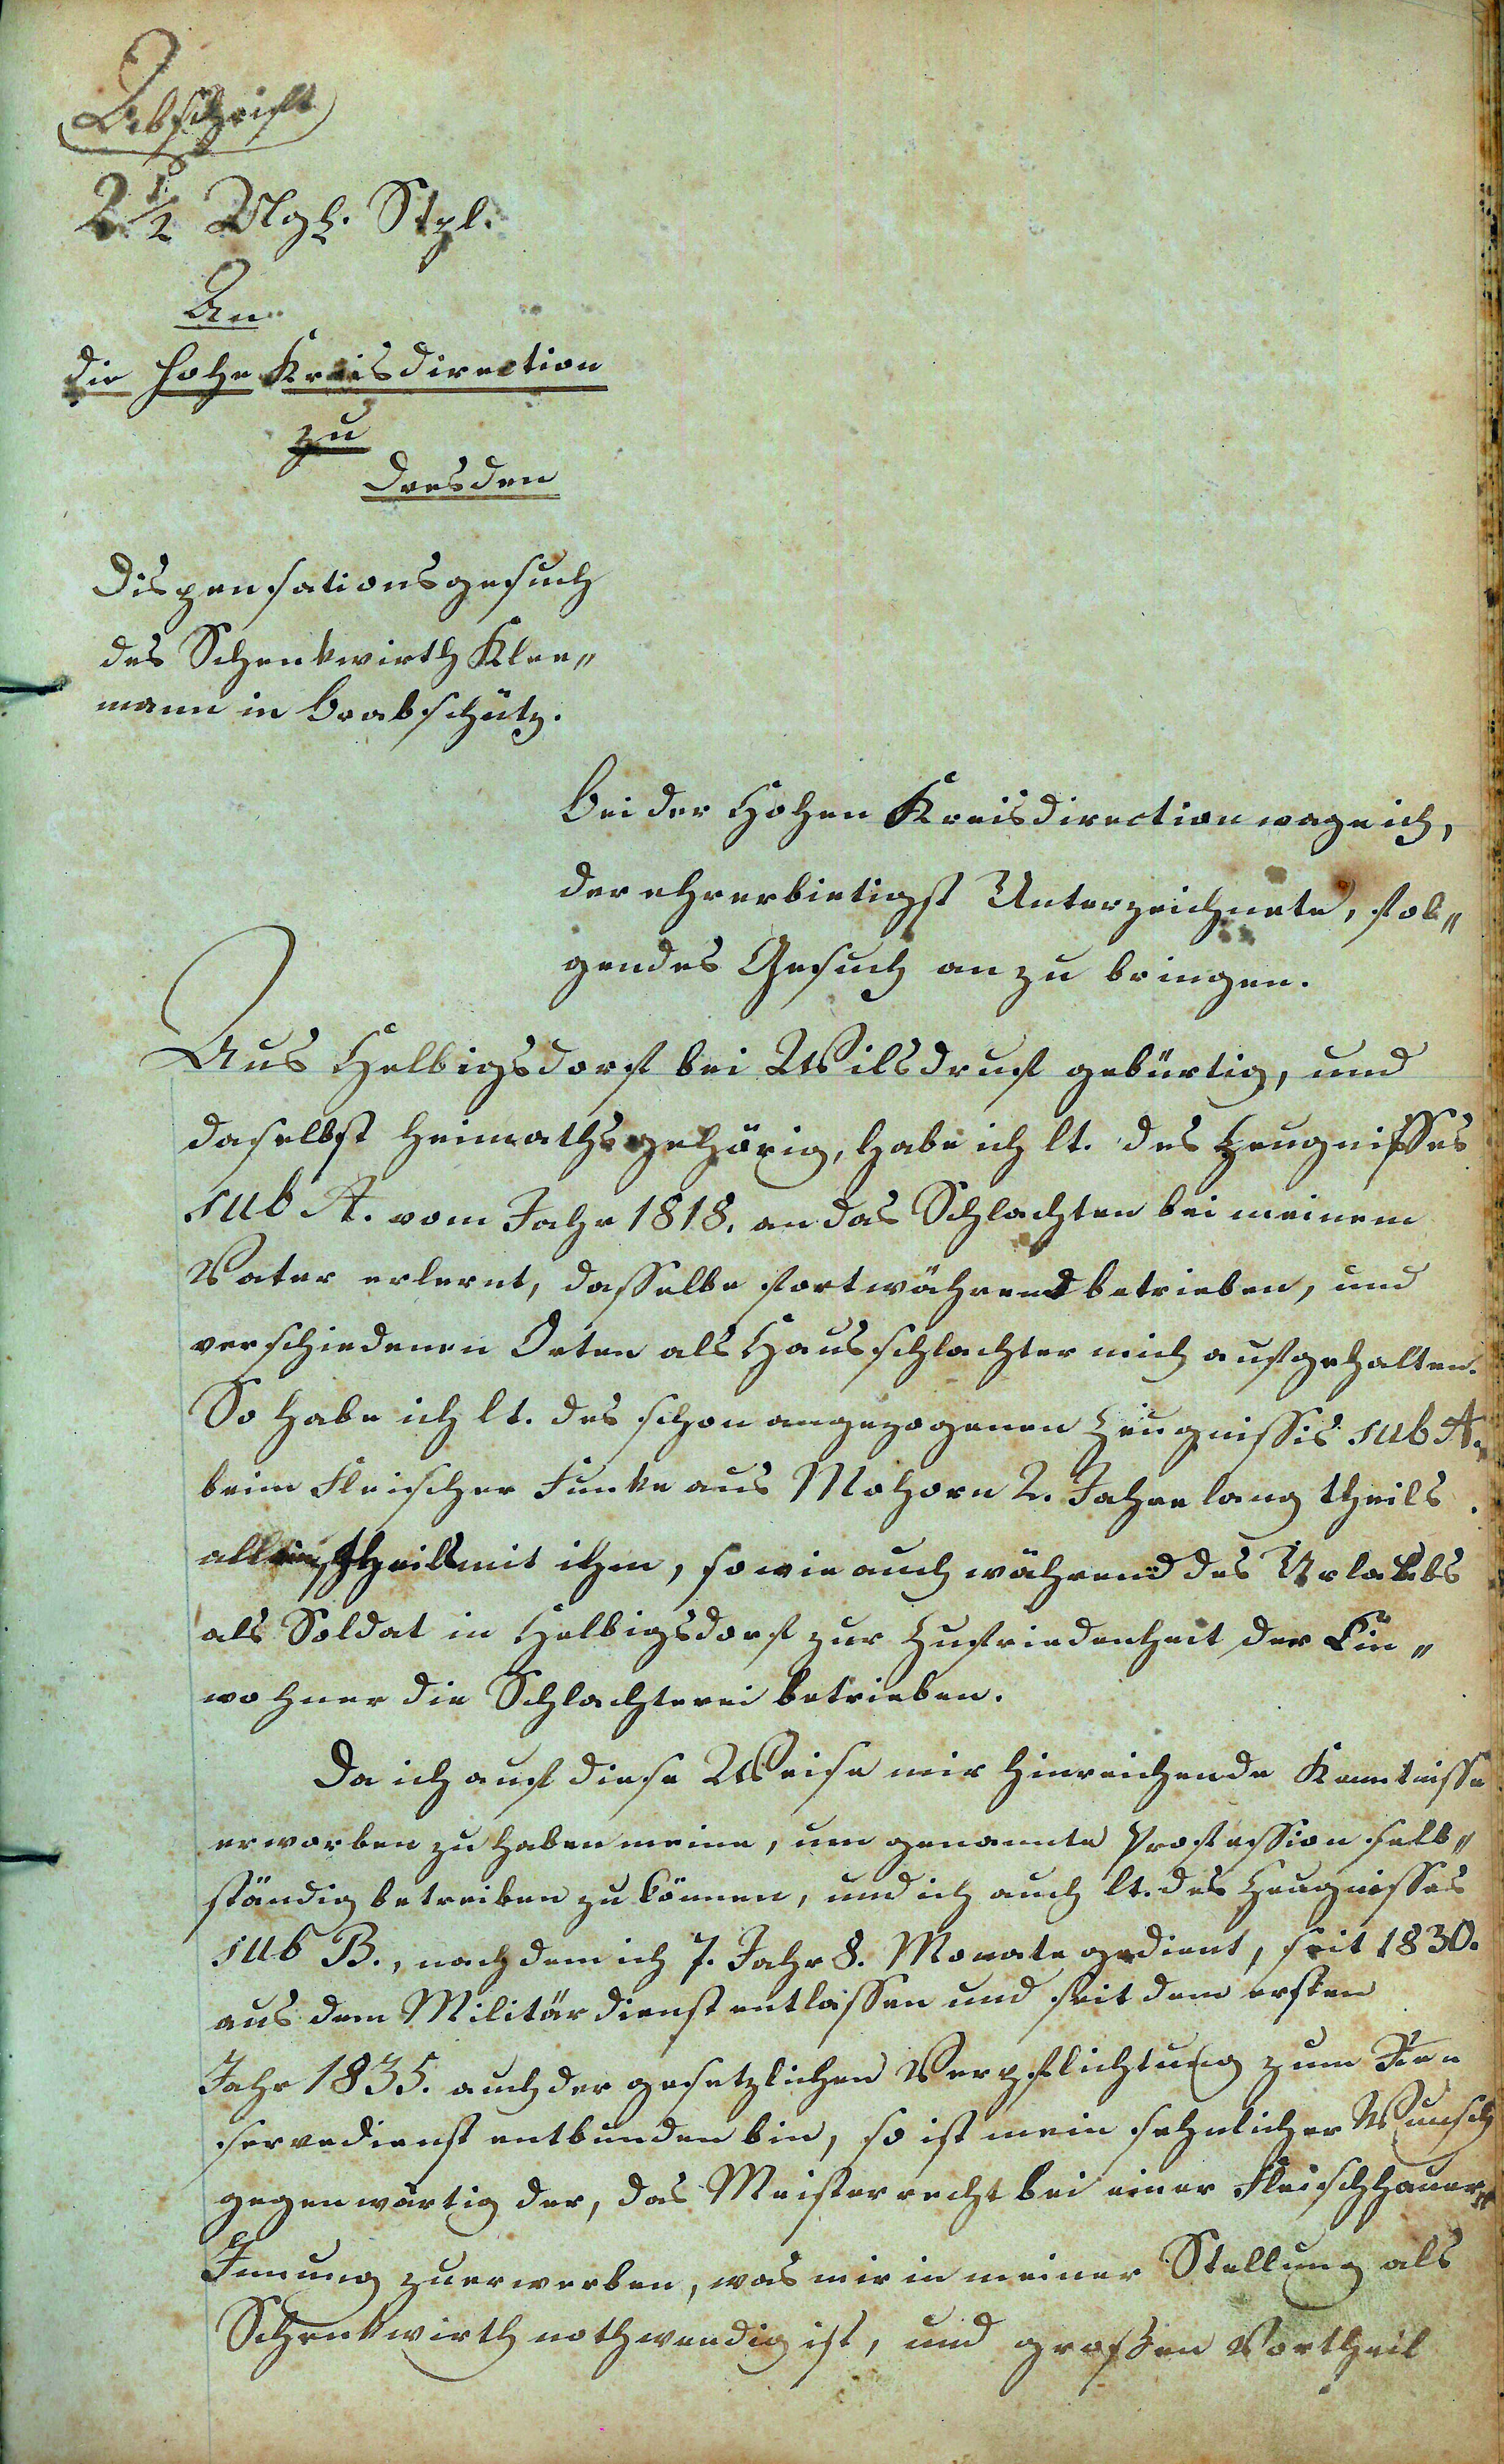 Abschrift
2½ Ngl. Stpl.
An
die hohe Kreisdirection
zu
Dresden
Dispensationsgesuch
des Schenkwirth Klee„
mann in Brabschütz.
Bei der Hohen Kreisdirection wage ich,
der ehrerbietigst Unterzeichnete, fol„
gendes Gesuch an zu bringen.
Aus Helbigsdorf bei Wilsdruf gebürtig, und
daselbst heimathsgehörig, habe ich lt. des Zeugnisses
sub A. vom Jahr 1818. an das Schlachten bei meinem
Vater erlernt, dasselbe fortwährend betrieben, und
verschiedenen Orten als Hausschlachter mich aufgehalten.
So habe ich lt. des schon angezogenen Zeugnisses sub A.
beim Fleischer Funke aus Mohorn 2. Jahre lang theils
allein, theils mit ihm, sowie auch während des Urlaubs
als Soldat in Helbigsdorf zur Zufriedenheit der Ein„
wohner die Schlachterei betrieben.
Da ich auf diese Weise mir hinreichende Kenntnisse
erworben zu haben meine, um genannte Profession selb„
ständig betreiben zu können, und ich auch lt. des Zeugnisses
sub B., nach dem ich 7. Jahr 8. Monate gedient, seit 1830.
aus dem Militärdienst entlassen und seit dem ersten
Jahr 1835. auch der gesetzlichen Verpflichtung zum Re„
servedienst entbunden bin, so ist mein sehnlicher Wunsch
gegenwärtig der, das Meisterrecht bei einer Fleischhauer„
Innung zu erwerben, was mir in meiner Stellung als
Schenkwirth nothwendig ist, und großen Vortheil